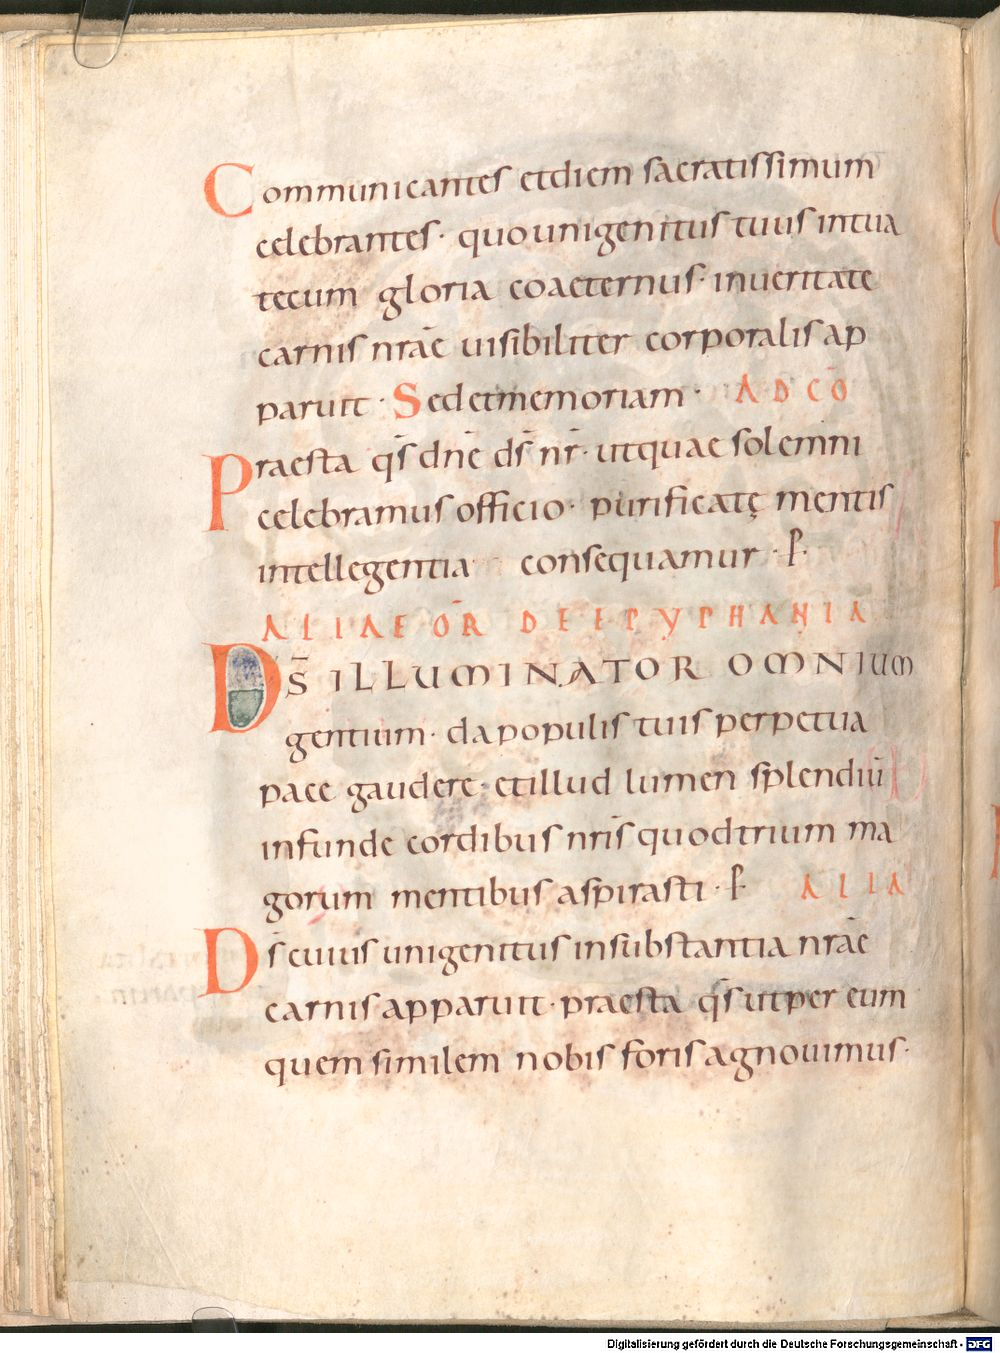 Communicantes et diem sacratissimum
celebrantes · quo unigenitus tuus in tua
tecum gloria coaeternus · in ueritate
carnis nrāe uisibiliter corporalis ap
paruit · Sed et memoriam · AD CŌ
Praesta qs̄ dnē ds̄ nr̄ · ut quae solemni
celebramus officio · purificatę mentis
intellegentia consequamur · P̱ ·
ALIAE OR̄ DE EPYPHANIA
DS̄ ILLUMINATOR OMNIUM
gentium · da populis tuis perpetua
pace gaudere · et illud lumen splendiū
infunde cordibus nrīs quod trium ma
gorum mentibus aspirasti · P̱ ALIA
Ds̄ cuius unigenitus in substantia nrāe
carnis apparuit · praesta qs̄ ut per eum
quem similem nobis foris agnouimus ·
Digitalisierung gefördert durch die Deutsche Forschungsgemeinschaft - DFG